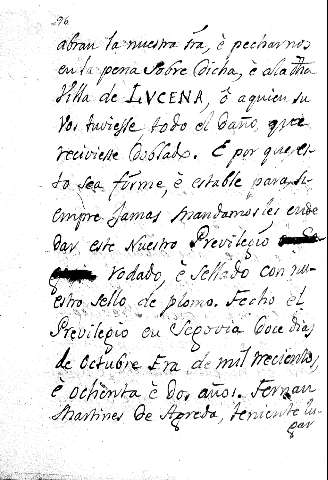 96
abran la nuestra ira, è pecharnos
en la pena sobre dicha, è a la dha
Villa de LUCENA, ò aquien su
vos tuviesse todo el daño, que
reciviesse doblado. E por que es-
to sea firme, è estable para si-
empre Jamas mandamosles ende
dar este Nuestro Previlegio
rodado, è sellado con nu-
estro sello de plomo. Fecho el
Previlegio en Segovia doce dias
de octubre Era de mil trecientos,
è ochenta è dos años. Fernan
Martines de Agreda, teniente lu-
gar